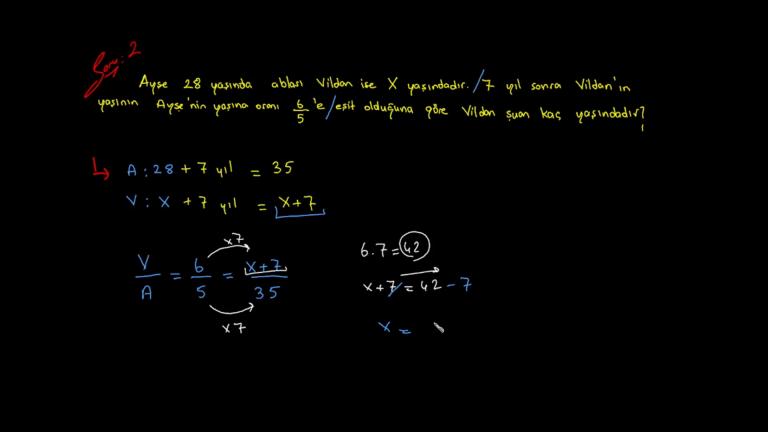 Soru: 2
Ayşe 28 yaşında ablası Vildan ise X yaşındadır. / 7 yıl sonra Vildan'ın
yaşının Ayşe'nin yaşına oranı 6/5 'e / eşit olduğuna göre Vildan şuan kaç yaşındadır?
A : 28 + 7 yıl = 35
V : X + 7 yıl = X+7
x7
V/A = 6/5 = X+7/35
x7
6.7 = 42
x+7 = 42 - 7
x =